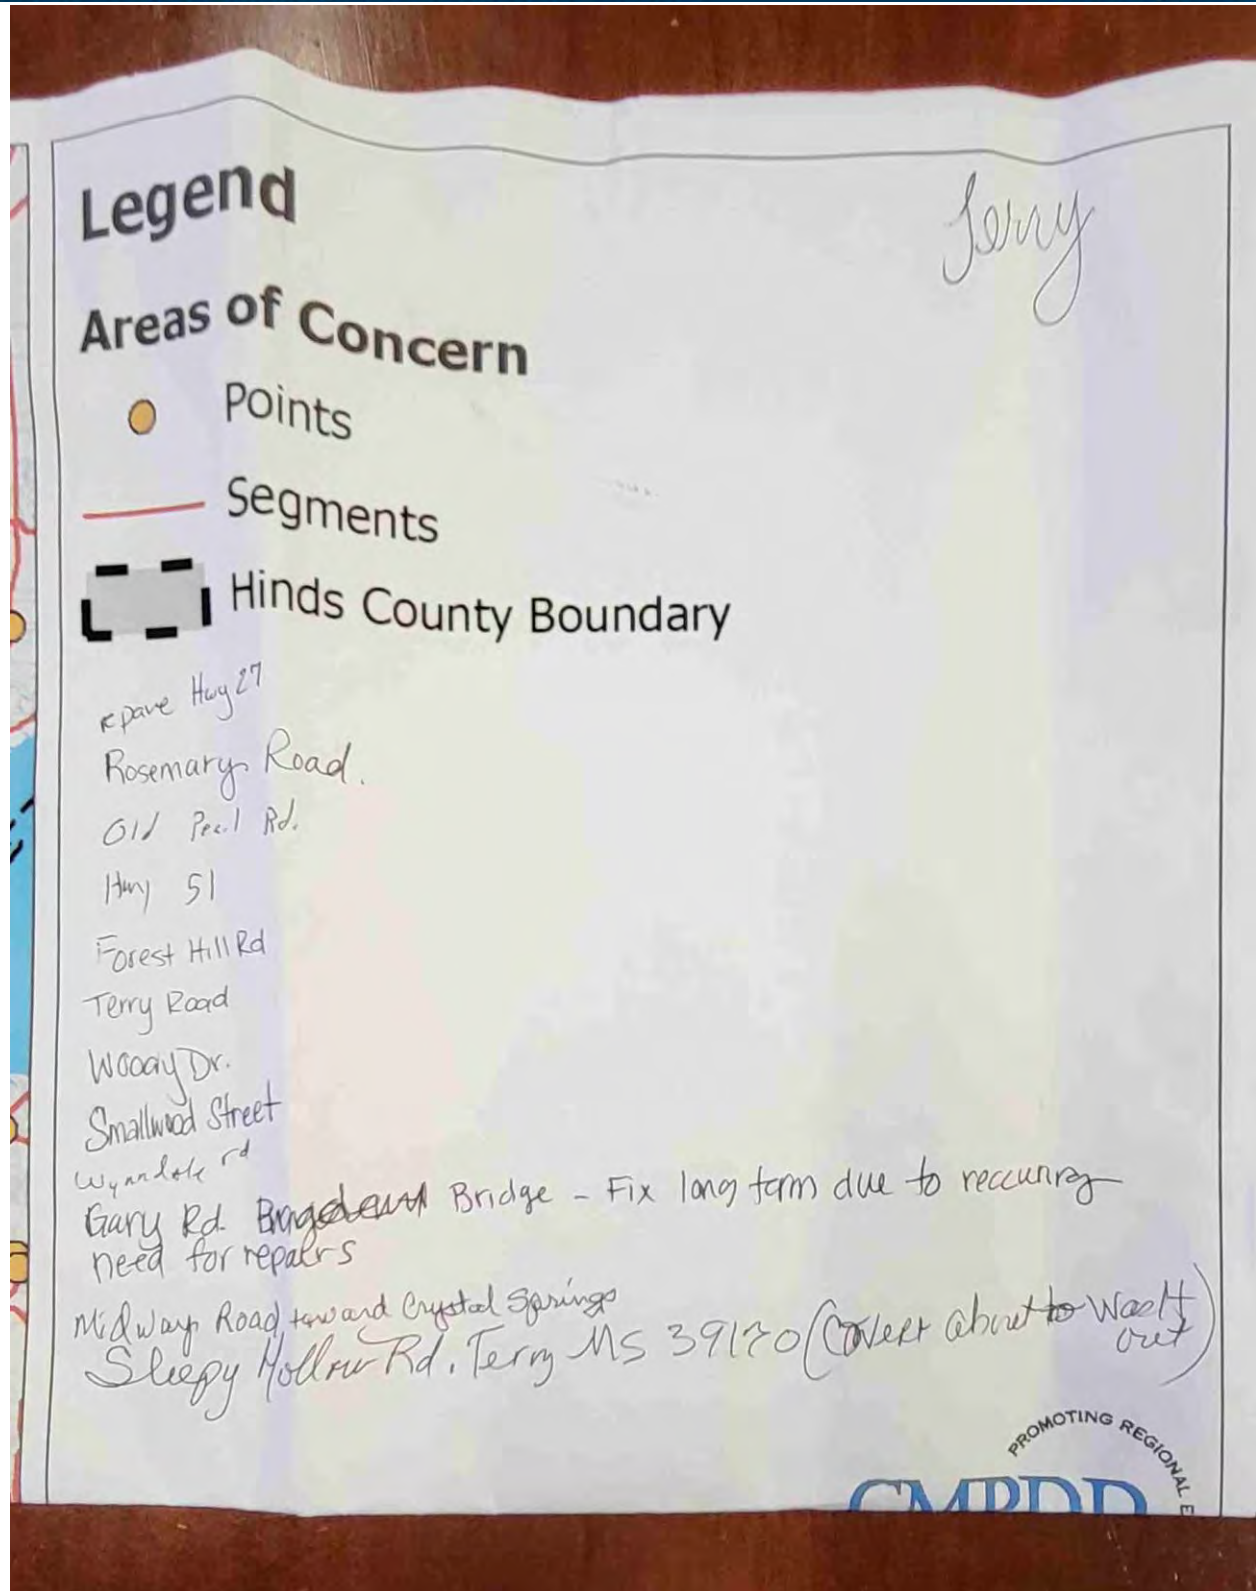 Legend
Terry
Areas of Concern
Points
Segments
Hinds County Boundary
repave Hwy 27
Rosemary Road.
Old Pearl Rd.
Hwy 51
Forest Hill Rd
Terry Road
Woody Dr.
Smallwood Street
Wynndale rd
Gary Rd. Bridge - Fix long term due to reccuring
need for repairs
Midway Road toward Crystal Springs
Sleepy Hollow Rd. Terry MS 39170 (Covert about to Wash
out)
PROMOTING REGIONAL E
CMPDD